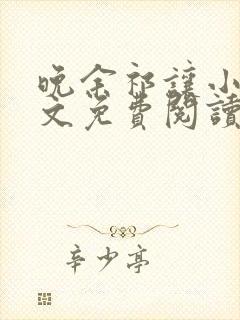 晚余祁讓小
文免費閱讀
辛少亭